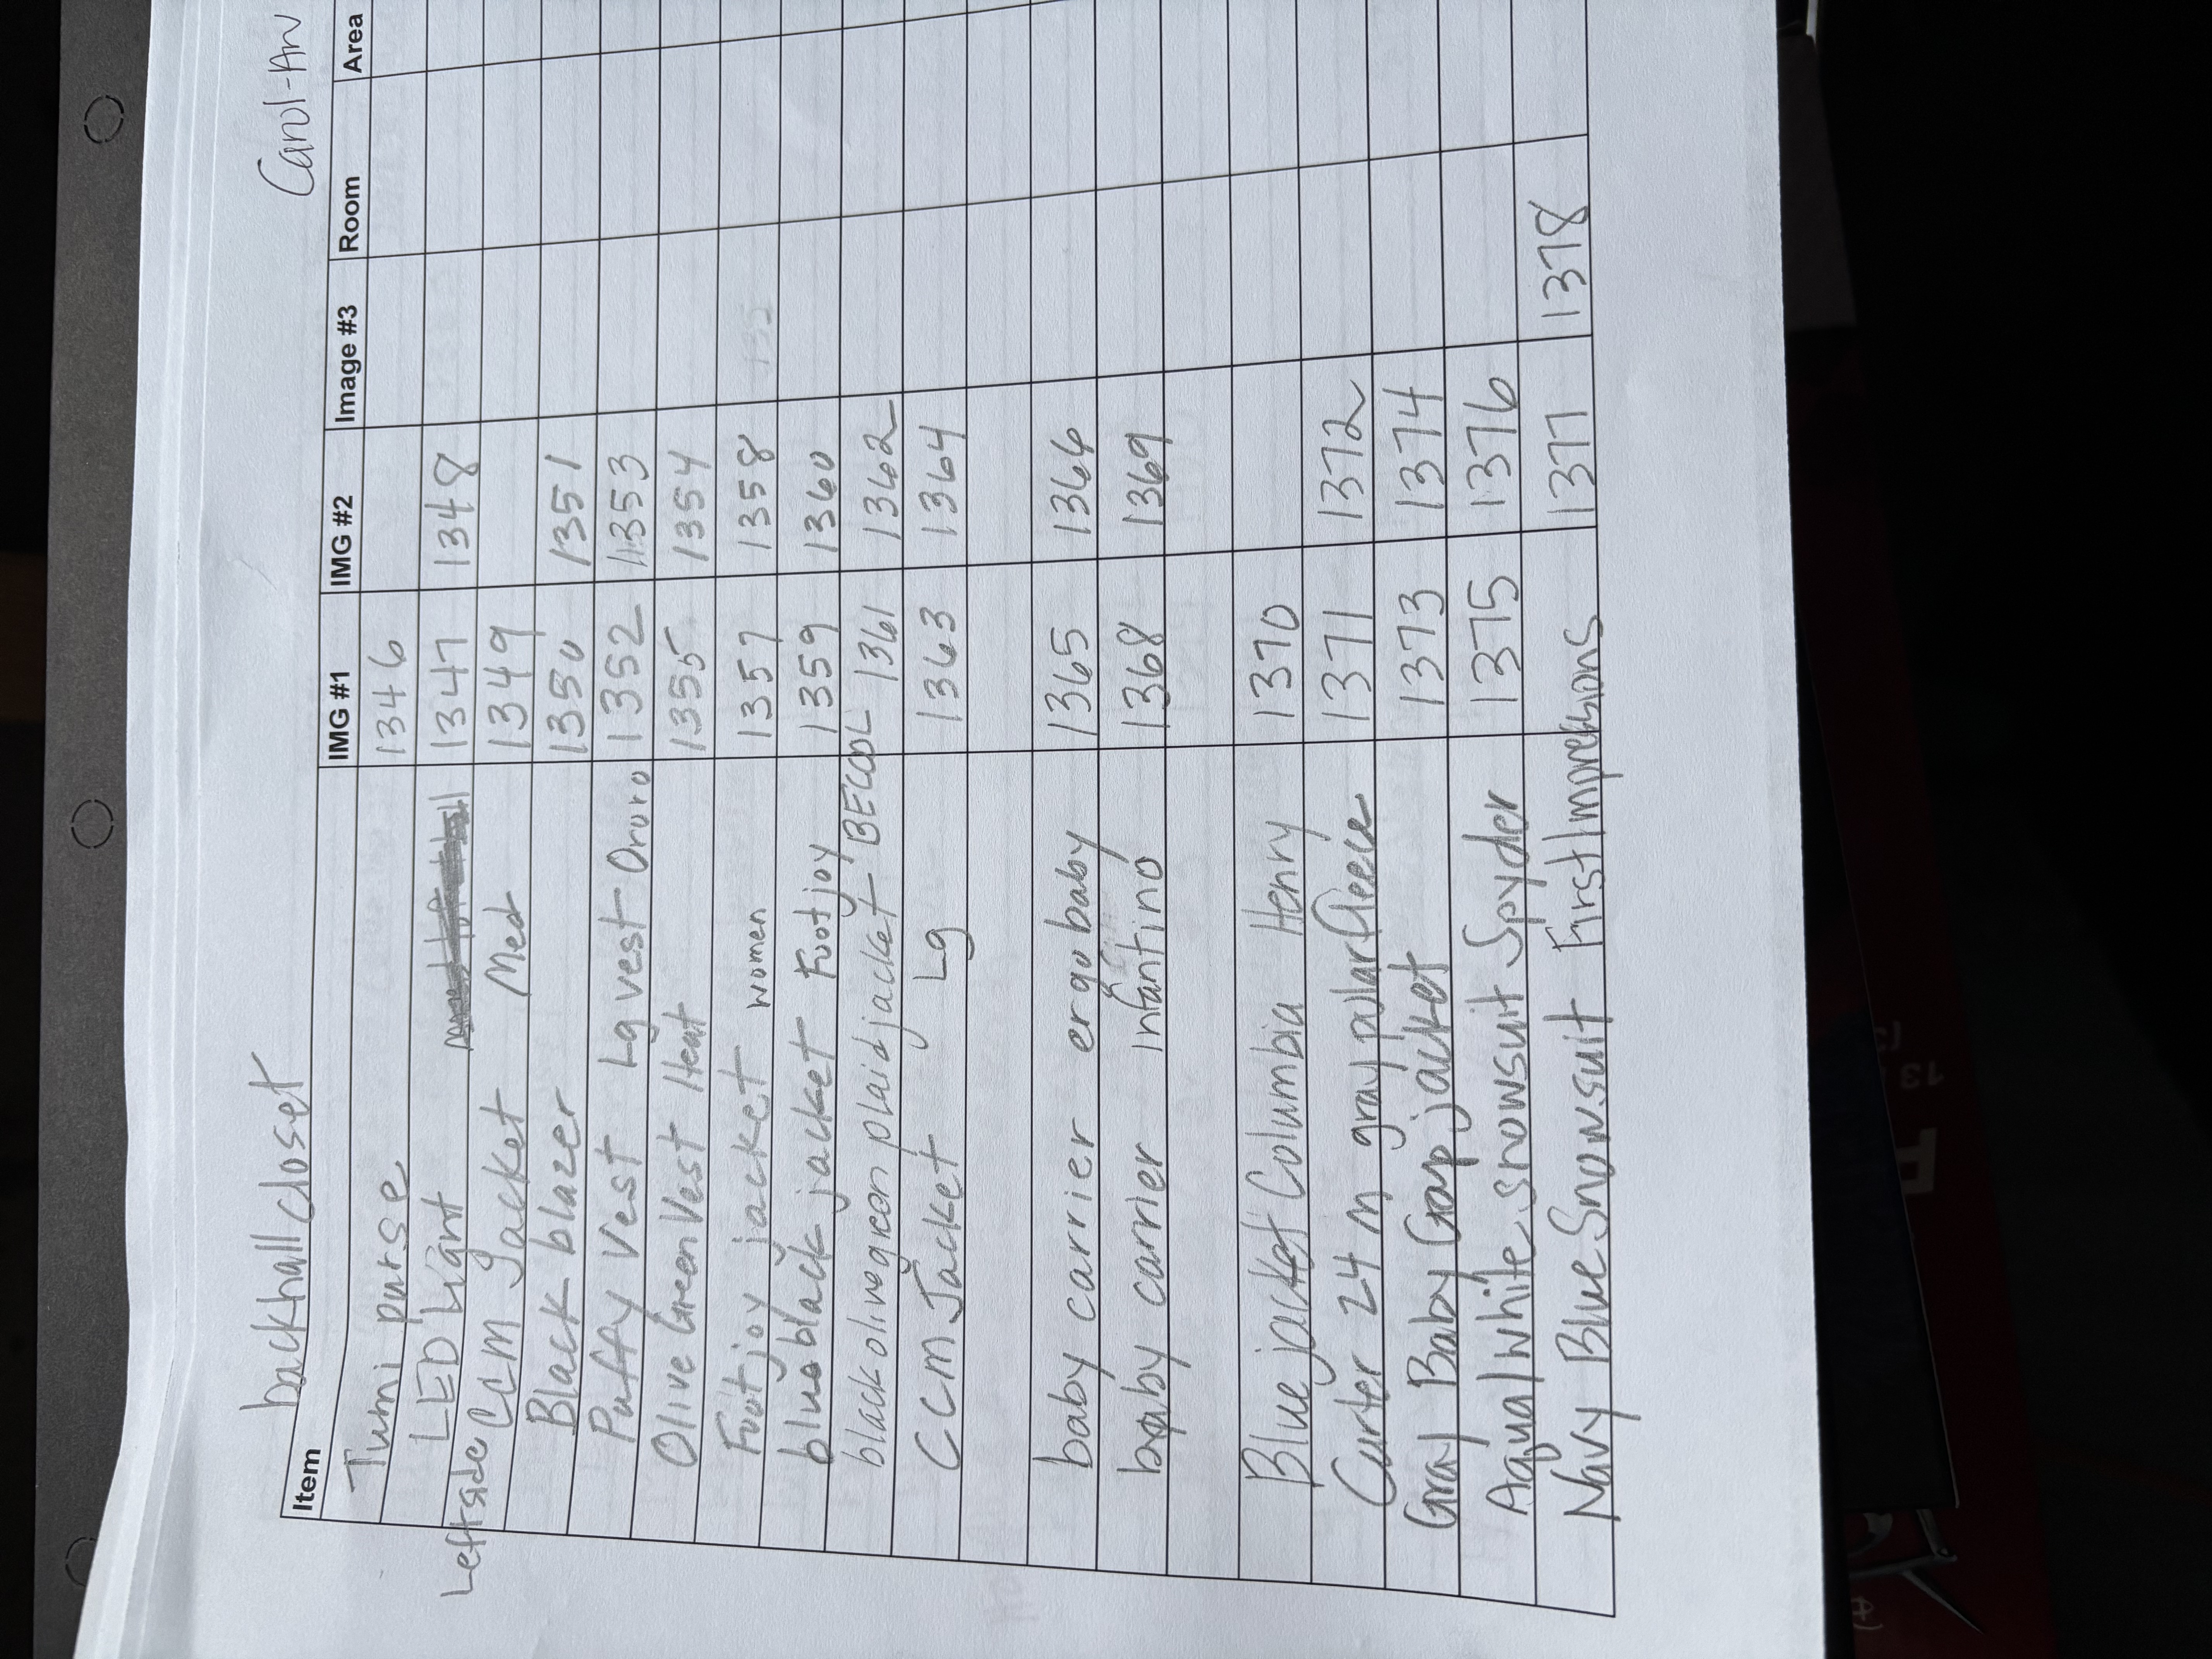 backhall closet Carol-An
Item IMG #1 IMG #2 Image #3 Room Area
Tumi purse 1346
LED light 1347 1348
Leftside CCM Jacket Med 1349
Black blazer 1350 1351
Puffy Vest Lg vest Ororo 1352 1353
Olive Green Vest Heat 1355 1354
Footjoy jacket women 1357 1358 135
blueblack jacket Footjoy 1359 1360
black olivegreen plaid jacket BECOOL 1361 1362
CCM Jacket Lg 1363 1364
baby carrier ergobaby 1365 1366
baby carrier infantino 1368 1369
Blue jacket Columbia Henry 1370
Carter 24 m gray polar fleece 1371 1372
Gray Baby Gap jacket 1373 1374
Aqua/white snowsuit Spyder 1375 1376
Navy Blue Snowsuit First Impressions 1377 1378